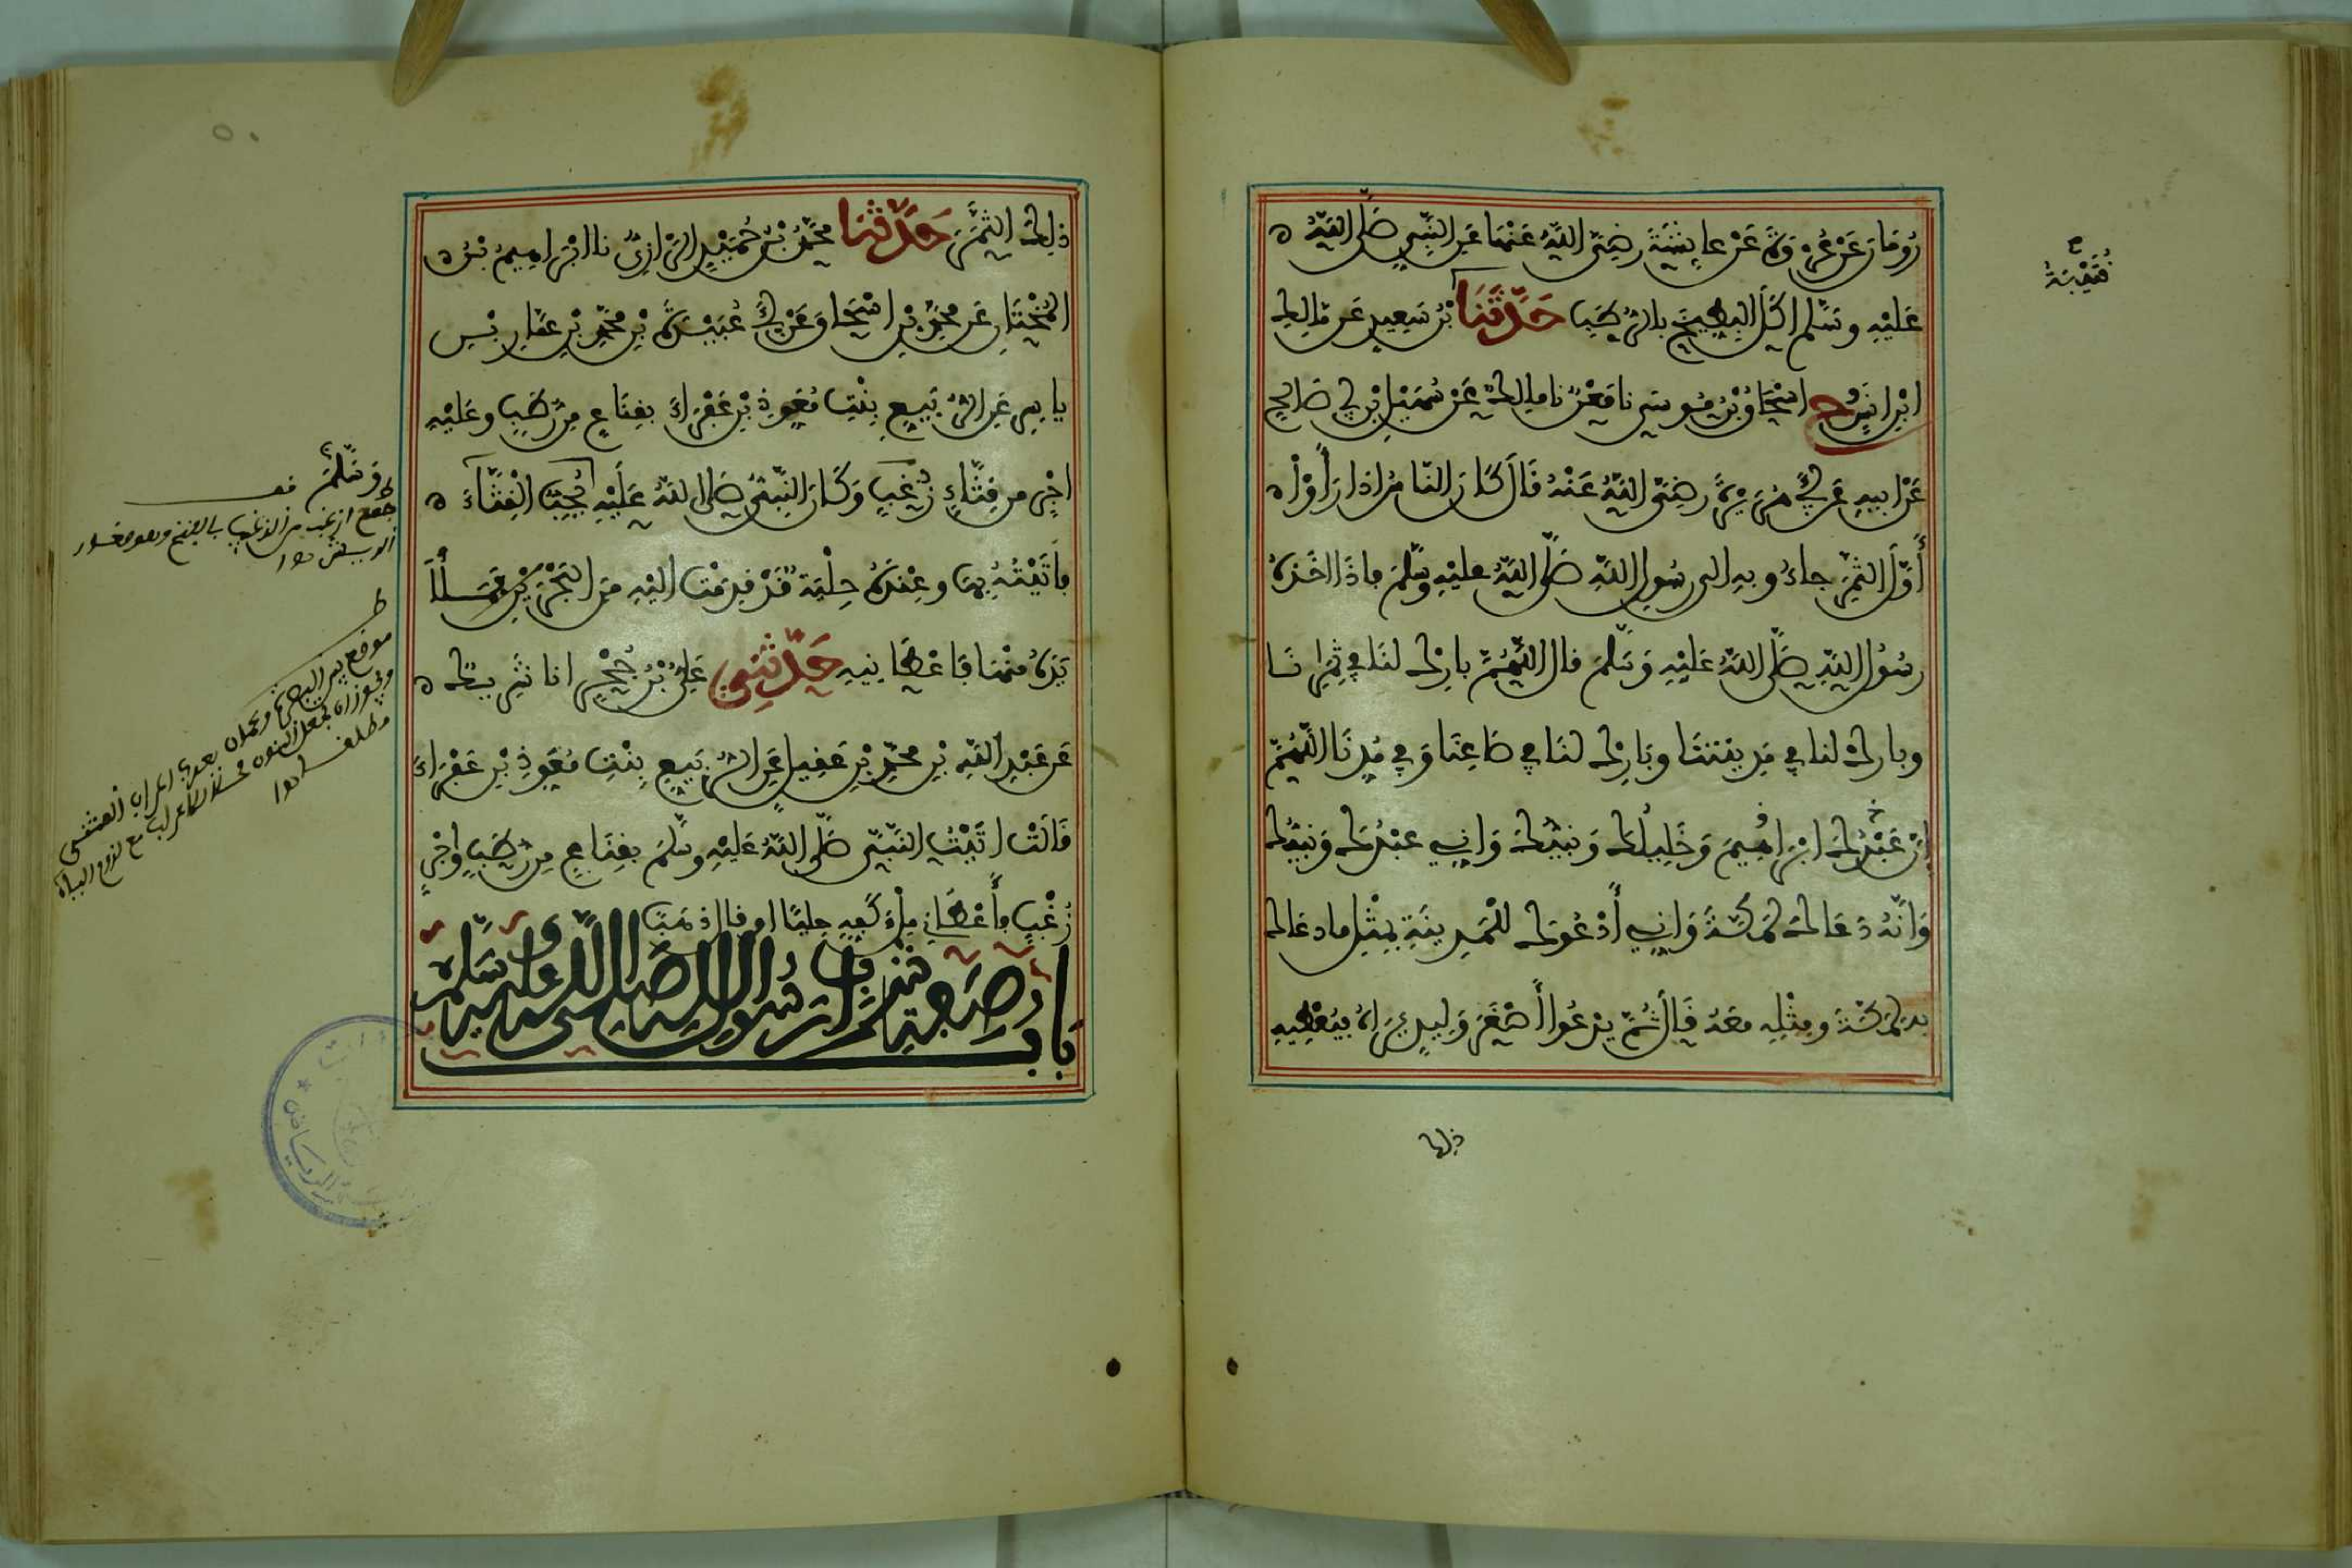 رُومَانَ عَنْ عُرْوَةَ عَنْ عَايِشَةَ رَضِيَ اللَّهُ عَنْهَا عَنِ النَّبِيِّ صَلَّى اللَّهُ
قُتَيْبَةُ
عَلَيْهِ وسَلَّم اكَلَ البِطِّيخَ بالرُّطَبِ حَدَّثَنَا بْنُ سَعِيدٍ عَن مَّالِكِ
ابْنِ انَسٍ ح وَنَا اسْحَاقُ بْنُ مُوسَى نا مَعْنٌ نا مالِكٌ عَنْ سُهَيْلِ بْنِ أَبِي صَالِحٍ
عَنْ ابِيهِ عَنَ أَبِي هُرَيْرَةَ رَضِيَ اللَّهُ عَنْهُ قَالَ كَانَ النَّاسُ إذَا رَأَوْا
أَوَّلَ الثَّمَرِ جاءُو بِهِ الى رَسُولِ اللَّهِ صَلَّى اللَّهُ عليْهِ وسَلَّمَ فاذَا اخَذَهُ
رسُولُ اللَّهِ صَلَّى اللَّهُ عَلَيْهِ وَسَلَّمَ قال اللَّهُمَّ بارِكْ لنَا فِي ثِمَارِنَا
وبارِكْ لنا فِي مَدِينَتِنَا وبَارِكْ لنَا فِي صَاعِنَا وَفِي مُدِّنَا اللَّهُمَّ
إِنَّ عَبْدُكَ ابْرَاهِيمَ وَخَلِيلُكَ وَنبِيُّكَ وَانِي عبْدُكَ وَنَبِيُّكَ
وَانَّهُ دَعَاكَ لِمَكَّةَ وَانِي أَدْعُوكَ لِلْمَدِينَةِ بِمِثْلِ ما دَعَاكَ
بِهِ لِمَكَّةَ ومِثْلِهِ معَهُ قَال ثُمَّ يدْعُوا أَصْغَرَ وَلِيدٍ يَرَاهُ فيُعْطِيهِ
ذلك
ذلِكَ الثَّمَرَ حَدَّثَنَا مُحَمَّدُ بْنُ حُمَيْدٍ الرَّازِيُّ نا ابْرَاهِيمُ بْنُ
المُخْتَارِ عَن مُحَمَّدِ بْنِ اسْحَاق عَنْ أَبِي عُبَيْدَةَ بْنِ مُحَمَّدِ بْنِ عَمَّارِ بْنِ
ياسِرٍ عَنِ الرُّبَيِّعِ بِنْتِ مُعَوِّذِ بْنِ عَفْرَاءَ بِقِنَاعٍ مِن رُّطَبٍ وعَليْهِ
اجْرٍ من قِثَّاءٍ زُغْبٍ وَكَانَ النَّبِيُّ صَلى اللهُ عَلَيْهِ يُحِبُّ الْقِثَّاءَ
فأتَيْتُهُ بِهَا وعِنْدَهُ حِلْيَةٌ قَدْ قدِمَتْ اليْهِ مِنَ الْبَحْرَيْنِ فَمَلأَ
يَدَهُ مِنْهَا فأعْطَانِيهِ حَدَّثَنِي عَلِيُّ بْنُ حُجْرٍ انا شَرِيكٌ
عَن عَبْدِ اللَّهِ بْنِ مُحَمَّدِ بْنِ عَقِيلٍ عَنِ الرُّبَيِّعِ بِنْتِ مُعَوِّذِ بْنِ عَفْرَاءَ
قَالَتْ اتَيْتُ النَّبِيَّ صَلَّى اللَّهُ عَلَيْهِ وسَلَّمَ بِقِنَاعٍ مِن رُّطَبٍ واجْرٍ
زُغْبٍ فأعْطَانِي مِلْءَ كَفِّهِ حليًا او قال ذهَبًا
بَابُ صِفَةِ شَرَابِ رسُولِ اللَّهِ صَلَّى اللَّهُ عَلَيْهِ وَسَلَّمَ
وَسَلَّمَ
جمع ازغب من الزغب بالفتح وهو صغار
الريش